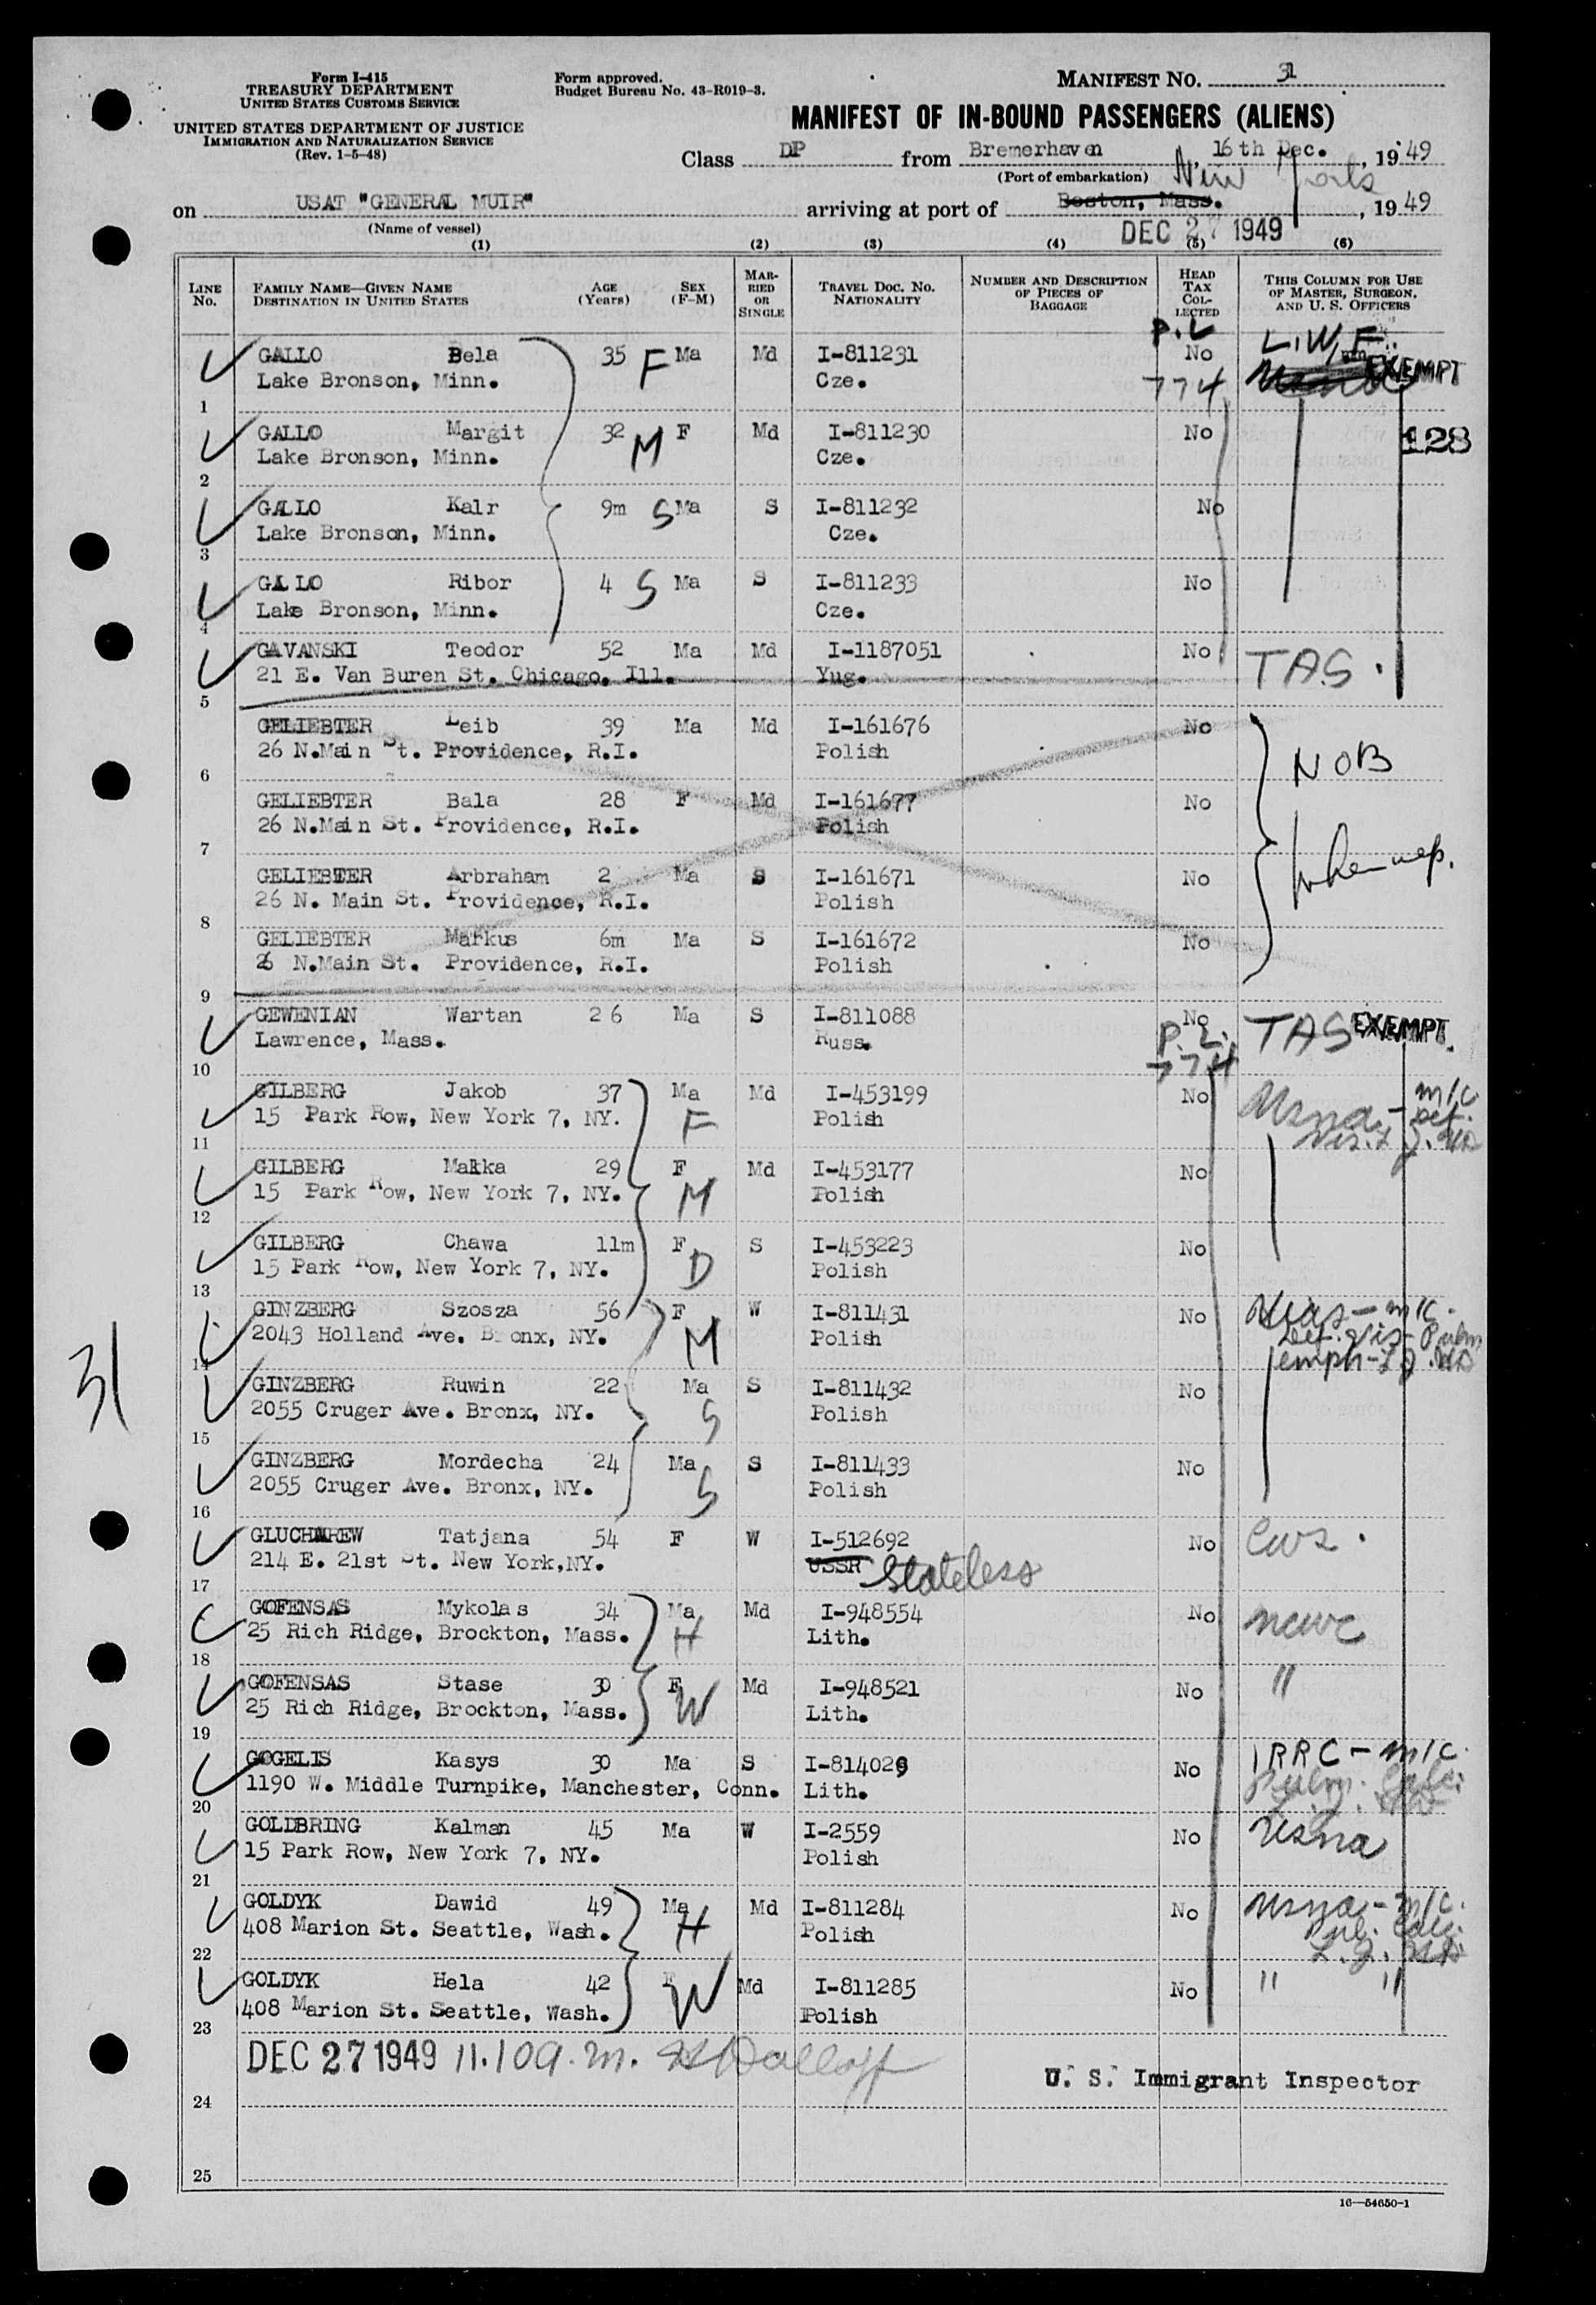 Form I-415
TREASURY DEPARTMENT
UNITED STATES CUSTOMS SERVICE
UNITED STATES DEPARTMENT OF JUSTICE
IMMIGRATION AND NATURALIZATION SERVICE
(Rev. 1-5-48)
Form approved.
Budget Bureau No. 43-R019-3.
MANIFEST NO. 31
MANIFEST OF IN-BOUND PASSENGERS (ALIENS)
Class DP from Bremerhaven, 16th Dec., 1949
(Port of embarkation) New York
on USAT "GENERAL MUIR" arriving at port of Boston, Mass., 1949
(Name of vessel) DEC 27 1949
(1) (2) (3) (4) (5) (6)
LINE No. FAMILY NAME—GIVEN NAME DESTINATION IN UNITED STATES AGE (Years) SEX (F-M) MARRIED OR SINGLE TRAVEL DOC. NO. NATIONALITY NUMBER AND DESCRIPTION OF PIECES OF BAGGAGE HEAD TAX COLLECTED THIS COLUMN FOR USE OF MASTER, SURGEON, AND U. S. OFFICERS
P.L L.W.F.
GALLO Bela 35 F Ma Md I-811231 No EXEMPT
Lake Bronson, Minn. Cze. 774
1
GALLO Margit 32 M F Md I-811230 No 128
Lake Bronson, Minn. Cze.
2
GALLO Kalr 9m S Ma S I-811232 No
Lake Bronson, Minn. Cze.
3
GALLO Ribor 4 S Ma S I-811233 No
Lake Bronson, Minn. Cze.
4
GAVANSKI Teodor 52 Ma Md I-1187051 No TAS.
21 E. Van Buren St. Chicago, Ill. Yug.
5
GELIEBTER Leib 39 Ma Md I-161676 No
26 N.Main St. Providence, R.I. Polish NOB
6
GELIEBTER Bala 28 F Md I-161677 No
26 N.Main St. Providence, R.I. Polish
7
GELIEBTER Arbraham 2 Ma S I-161671 No
26 N. Main St. Providence, R.I. Polish
8
GELIEBTER Markus 6m Ma S I-161672 No
26 N.Main St. Providence, R.I. Polish
9
GEWENIAN Wartan 26 Ma S I-811088 No TAS EXEMPT
Lawrence, Mass. Russ. P.L.
10 774
GILBERG Jakob 37 Ma Md I-453199 No Usna - m/c
15 Park Row, New York 7, NY. F Polish
11
GILBERG Malka 29 F Md I-453177 No
15 Park Row, New York 7, NY. M Polish
12
GILBERG Chawa 11m F S I-453223 No
15 Park Row, New York 7, NY. D Polish
13
GINZBERG Szosza 56 F W I-811431 No Hias - m/c.
2043 Holland Ave. Bronx, NY. M Polish
14
GINZBERG Ruwin 22 Ma S I-811432 No
2055 Cruger Ave. Bronx, NY. S Polish
15
GINZBERG Mordecha 24 Ma S I-811433 No
2055 Cruger Ave. Bronx, NY. S Polish
16
GLUCHAREW Tatjana 54 F W I-512692 No CWS.
214 E. 21st St. New York,NY. USSR Stateless
17
GOFENSAS Mykolas 34 Ma Md I-948554 No NCWC
25 Rich Ridge, Brockton, Mass. H Lith.
18
GOFENSAS Stase 30 F Md I-948521 No "
25 Rich Ridge, Brockton, Mass. W Lith.
19
GOGELIS Kasys 30 Ma S I-814029 No IRRC - m/c.
1190 W. Middle Turnpike, Manchester, Conn. Lith.
20
GOLDBRING Kalman 45 Ma W I-2559 No Usna
15 Park Row, New York 7, NY. Polish
21
GOLDYK Dawid 49 Ma Md I-811284 No Usna - m/c.
408 Marion St. Seattle, Wash. H Polish
22
GOLDYK Hela 42 F Md I-811285 No " "
408 Marion St. Seattle, Wash. W Polish
23
DEC 27 1949 11.10 a.m.
U. S. Immigrant Inspector
24
25
16—54650-1
31